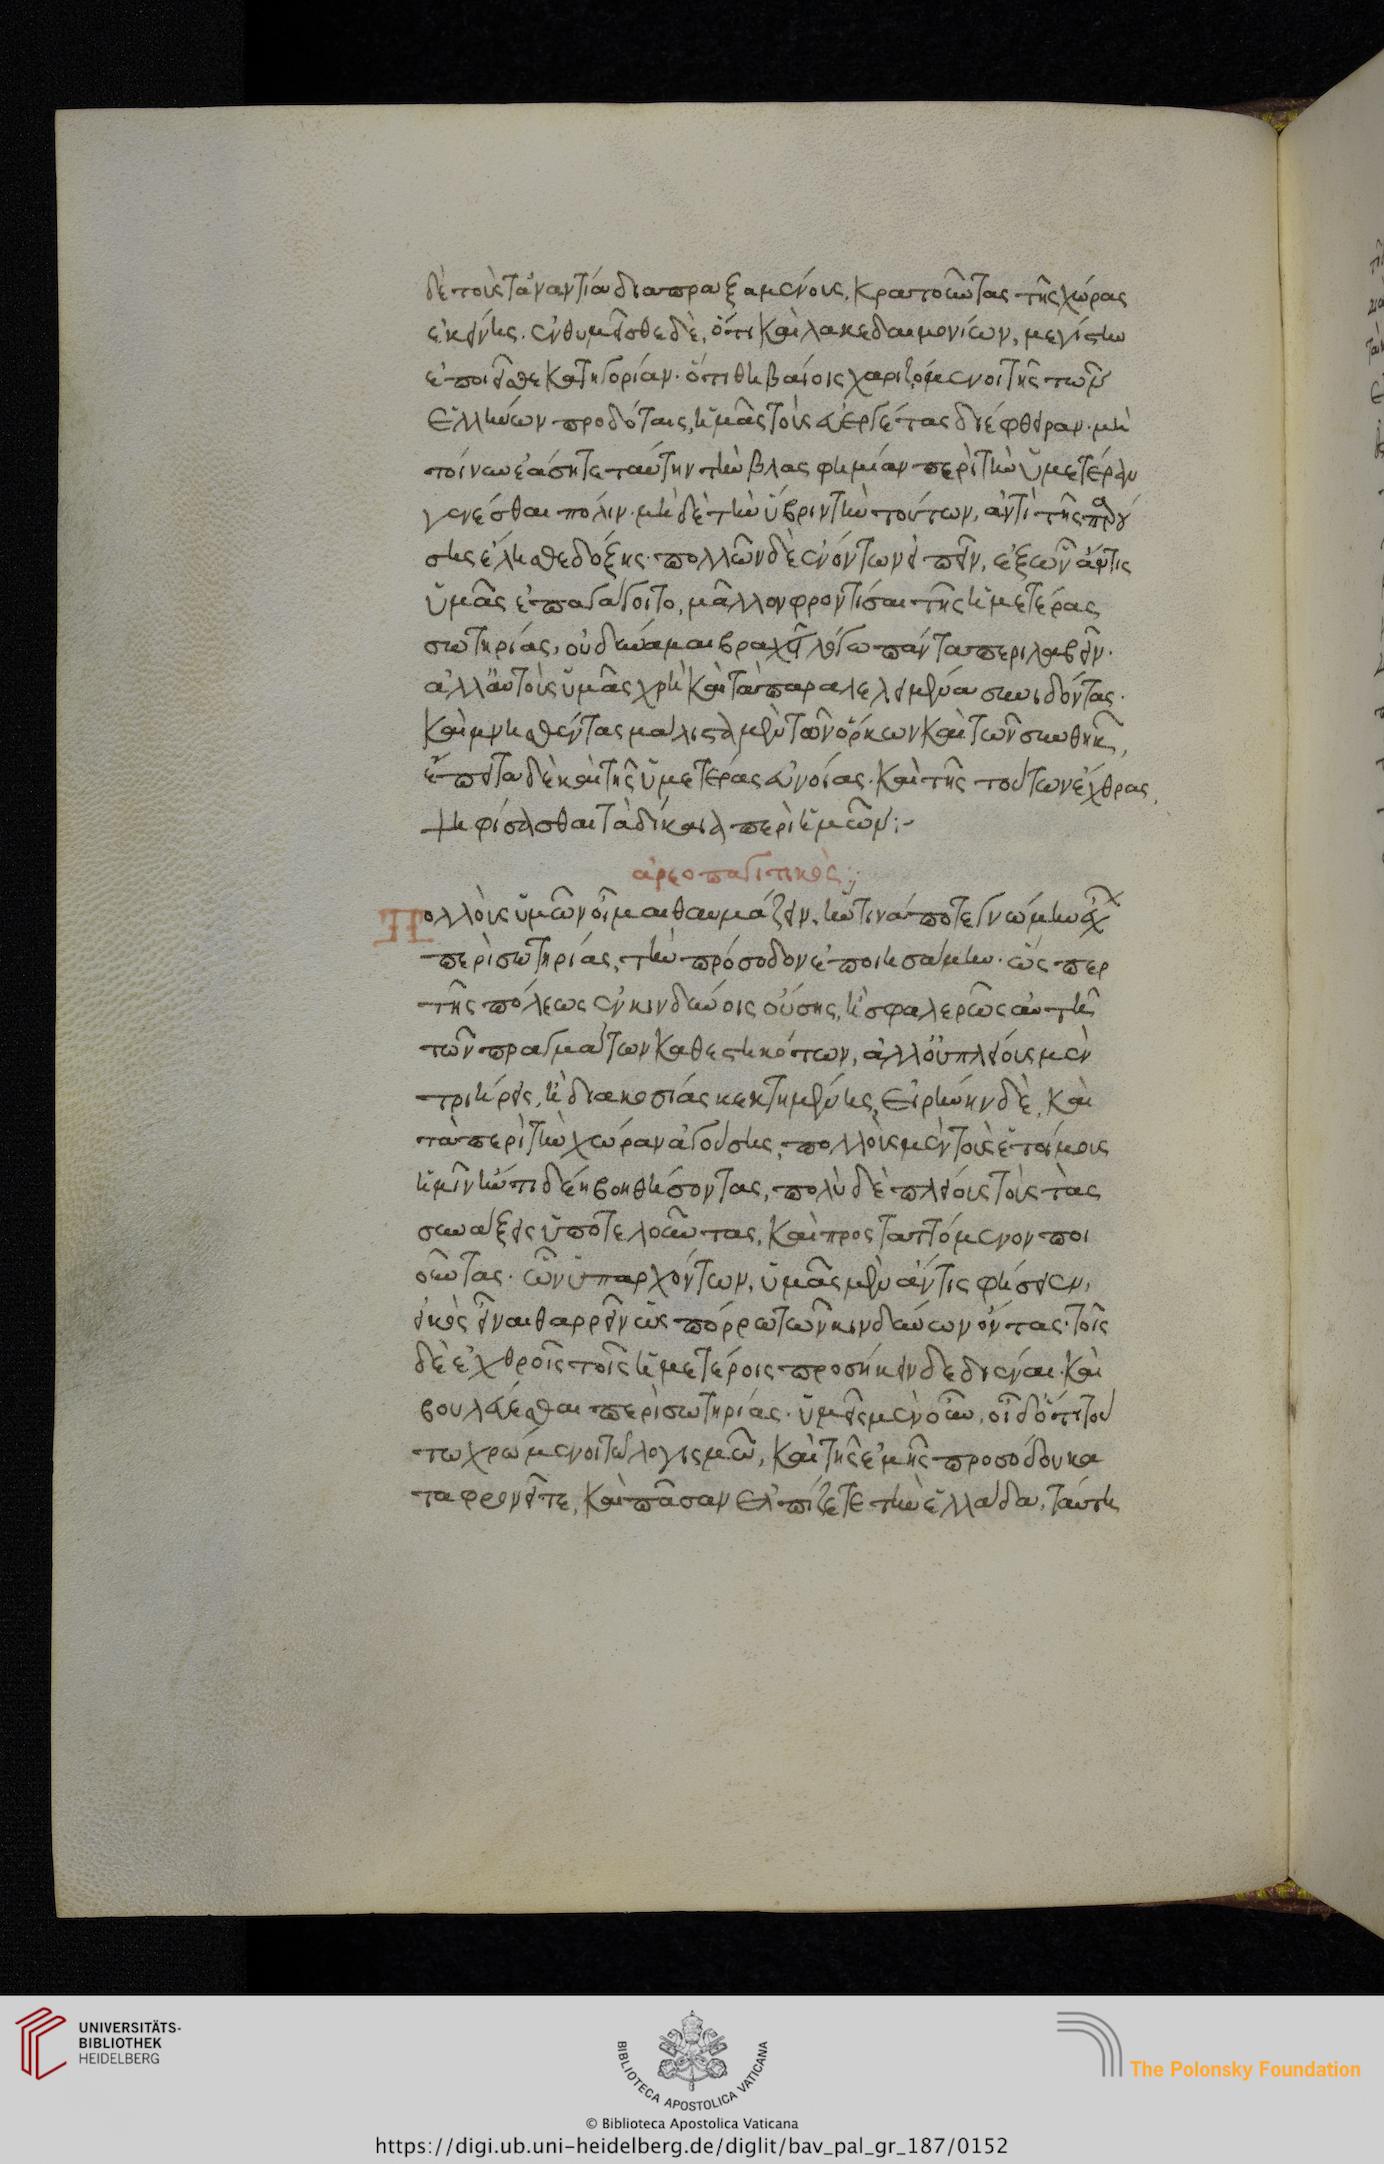 δὲ τοὺς τἀναντία διαπραξαμένους, κρατοῦντας τῆς χώρας
ἐκείνης. ἐνθυμεῖσθε δὲ, ὅτι καὶ λακεδαιμονίων, μεγίστην
ἐποιεῖσθε κατηγορίαν· ὅτι θηβαίοις χαριζόμενοι τοῖς τῶν
Ἑλλήνων προδόταις, ἡμᾶς τοὺς εὐεργέτας διέφθειραν· μὴ
τοίνυν ἐάσητε ταύτην τὴν βλασφημίαν περὶ τὴν ὑμετέραν
γενέσθαι πόλιν· μὴ δὲ τὴν ὕβριν τὴν τούτων, ἀντὶ τῆς παρού
σης ἕλησθε δόξης· πολλῶν δὲ ἐνόντων εἰπεῖν, ἐξ ὧν ἄν τις
ὑμᾶς ἐπαγάγοιτο, μᾶλλον φροντίσαι τῆς ἡμετέρας
σωτηρίας, οὐ δύναμαι βραχεῖ λόγω πάντα περιλαβεῖν·
ἀλλ' αὐτοὺς ὑμᾶς χρὴ καὶ τὰ παραλελειμμένα συνιδόντας·
καὶ μνησθέντας μάλιστα μὲν τῶν ὅρκων καὶ τῶν συνθηκῶν,
ἔπειτα δὲ καὶ τῆς ὑμετέρας εὐνοίας· καὶ τῆς τούτων ἔχθρας,
ψηφίσασθαι τὰ δίκαια περὶ ἡμῶν:-
ἀρεοπαγιτικὸς;
Πολλοὺς ὑμῶν οἶμαι θαυμάζειν, ἥν τινά ποτε γνώμην ἔχων
περὶ σωτηρίας, τὴν πρόσοδον ἐποιησάμην· ὥς περ
τῆς πόλεως ἐν κινδύνοις οὔσης, ἢ σφαλερῶς αὐτῆ
τῶν πραγμάτων καθεστηκότων, ἀλλ' οὐ πλείους μὲν
τριήρεις, ἢ διακοσίας κεκτημένης, εἰρήνην δὲ, καὶ
τὰ περὶ τὴν χώραν ἀγούσης, πολλοὺς μὲν τοὺς ἑτοίμους
ἡμῖν ἤν τι δέη βοηθήσοντας, πολὺ δὲ πλείους τοὺς τὰς
συντάξεις ὑποτελοῦντας, καὶ προσταττόμενον ποι
οῦντας· ὧν ὑπαρχόντων, ὑμᾶς μὲν ἄν τις φήσειεν,
εἰκὸς εἶναι θαρρεῖν ὡς πόρρω τῶν κινδύνων ὄντας· τοῖς
δὲ ἐχθροῖς τοῖς ἡμετέροις προσήκειν δεδιέναι· καὶ
βουλεύεσθαι περὶ σωτηρίας· ὑμεῖς μὲν οὖν, οἶδ' ὅτι τού
τω χρώμενοι τῶ λογισμῶ, καὶ τῆς ἐμῆς προσόδου κα
ταφρονεῖτε, καὶ πᾶσαν ἐλπίζετε τὴν ἑλλάδα, ταύτη
UNIVERSITÄTS-
BIBLIOTHEK
HEIDELBERG
BIBLIOTECA APOSTOLICA VATICANA
The Polonsky Foundation
© Biblioteca Apostolica Vaticana
https://digi.ub.uni-heidelberg.de/diglit/bav_pal_gr_187/0152